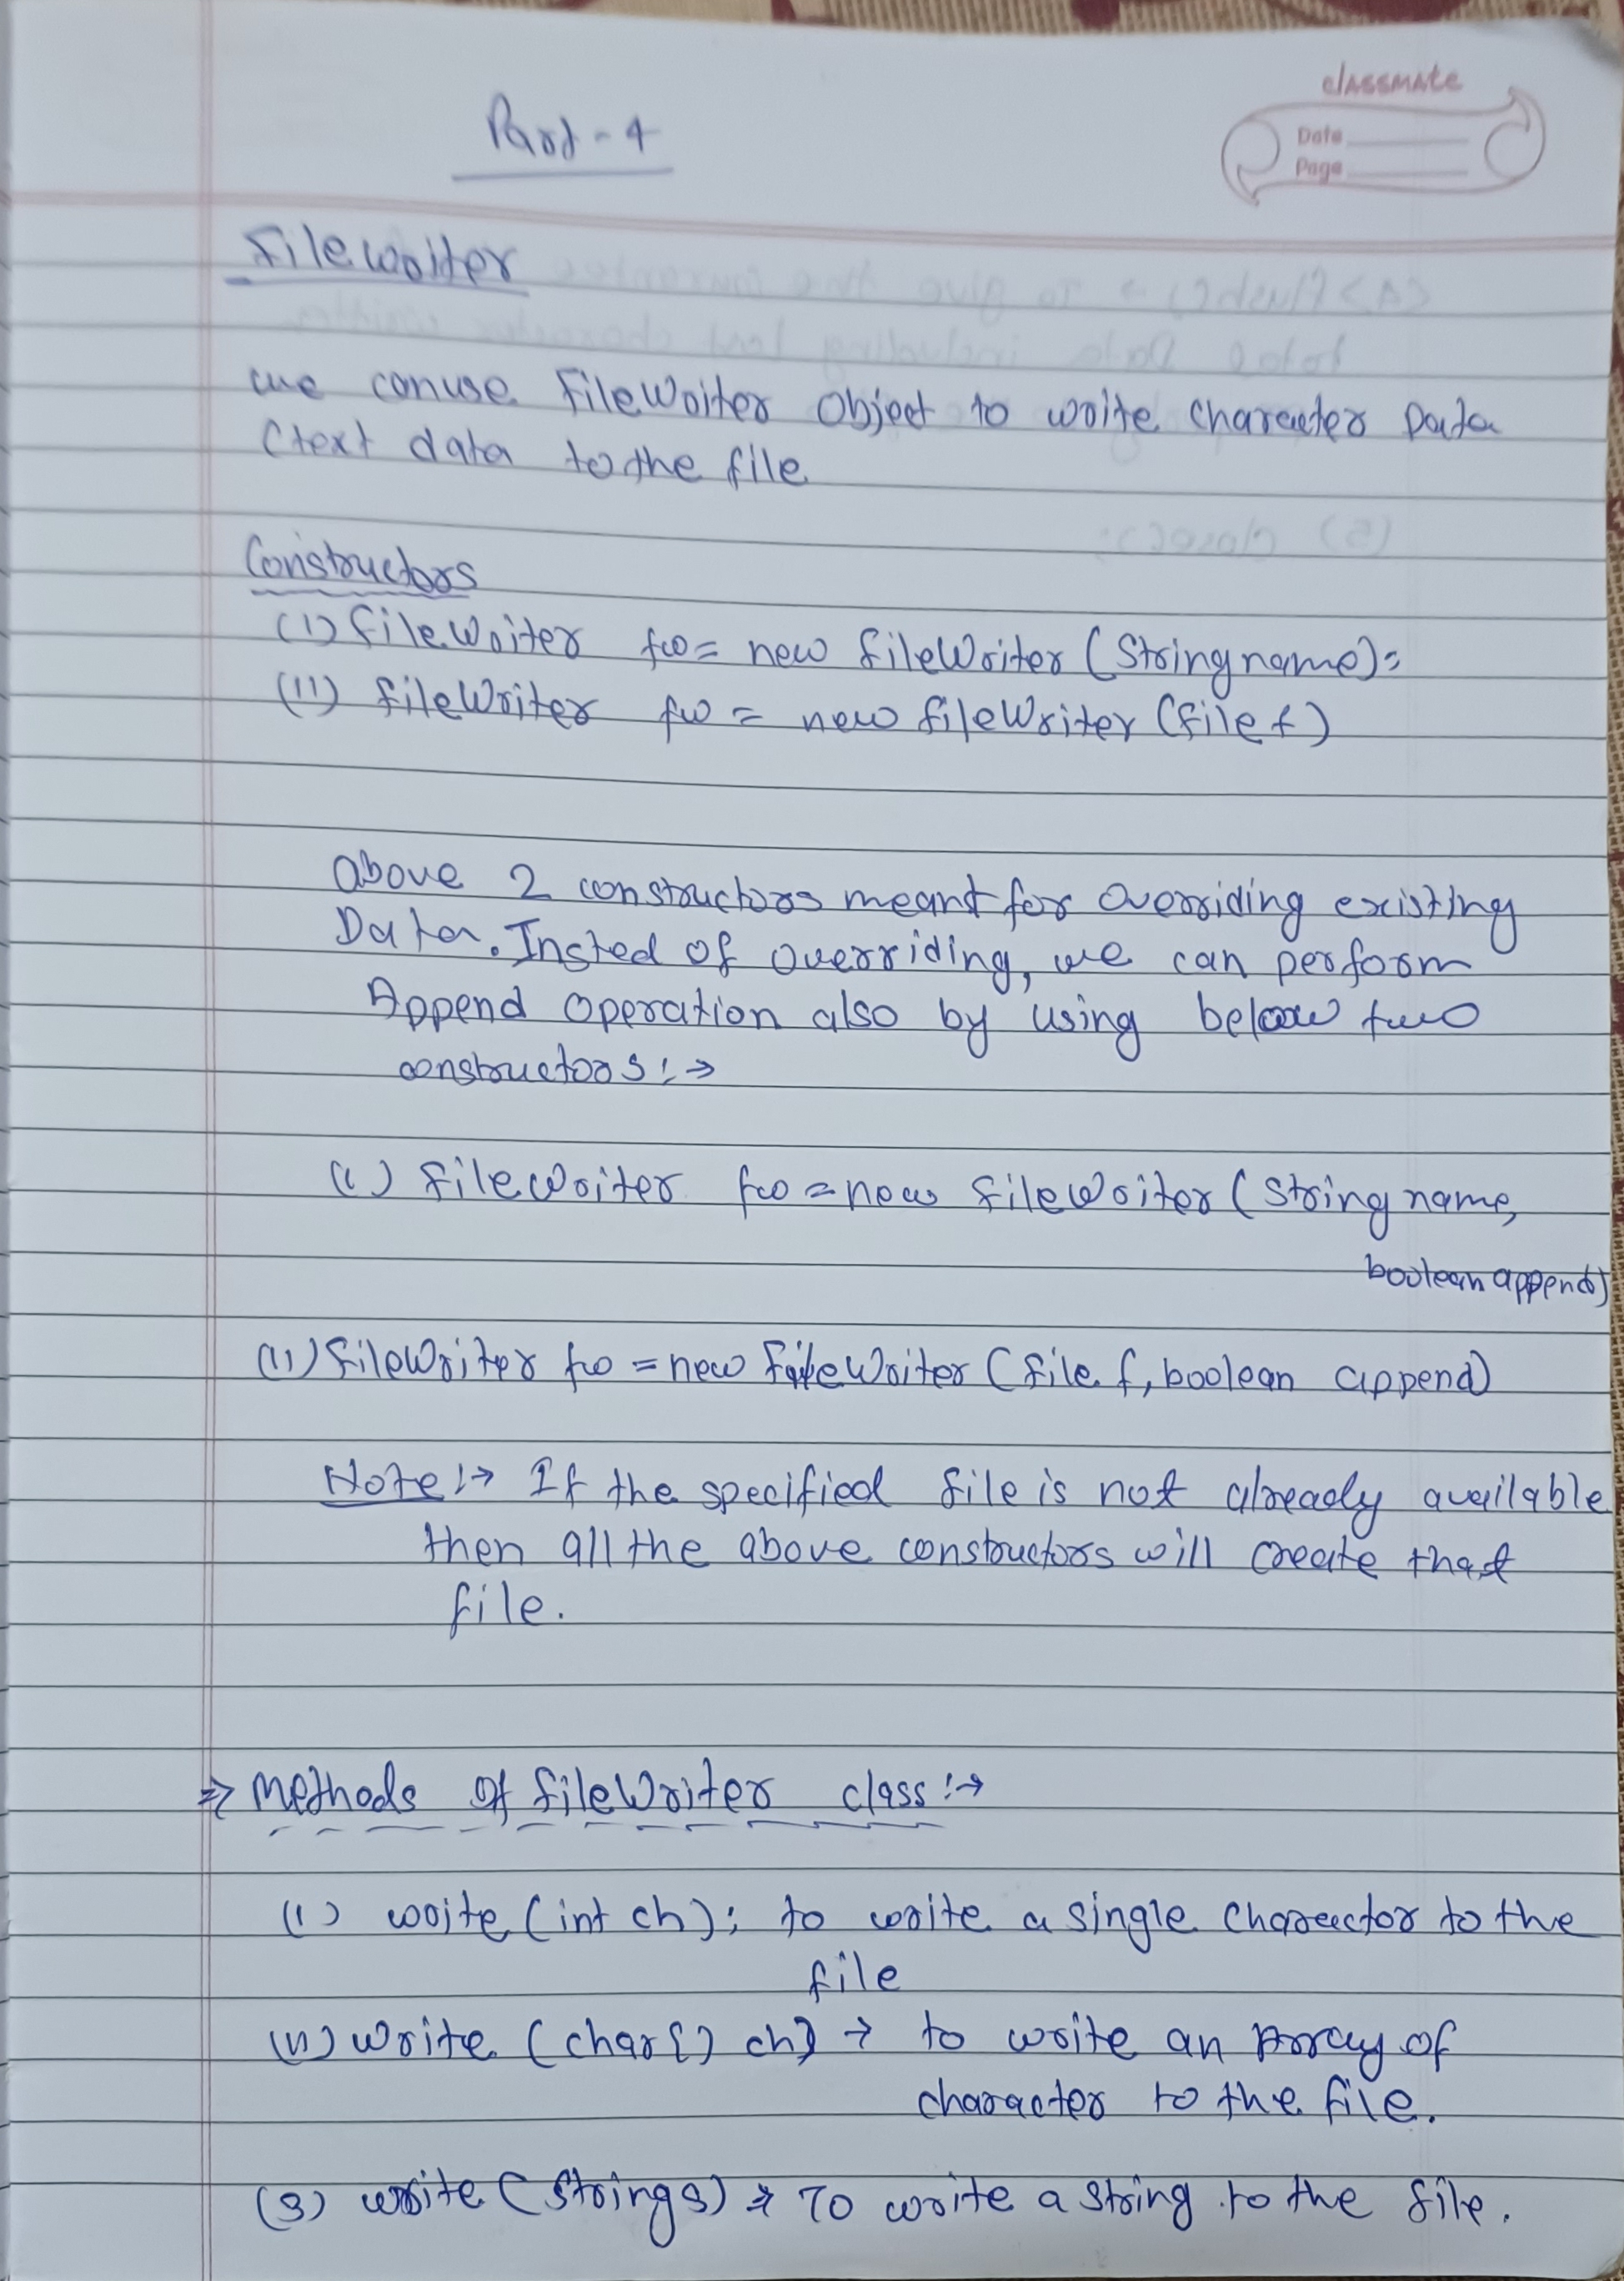 classmate
Date
Page
Part - 4
FileWriter
we canuse FileWriter Object to write character Data
(text data to the file
Constructors
(1) FileWriter fw = new FileWriter (String name);
(11) FileWriter fw = new FileWriter (File f)
Above 2 constructors meant for Overriding existing
Data. Insted of overriding, we can perform
Append operation also by using below two
constructors :→
(1) FileWriter fw = new FileWriter ( String name,
boolean append)
(11) FileWriter fw = new FileWriter ( File f, boolean append)
Note :→ If the specified file is not already available
then all the above constructors will create that
file.
⇒ Methods Of FileWriter class :→
(1) write (int ch); to write a single charactor to the
file
(11) write (char[] ch) → to write an Array of
character to the file.
(3) write (String s) → To write a string to the file.